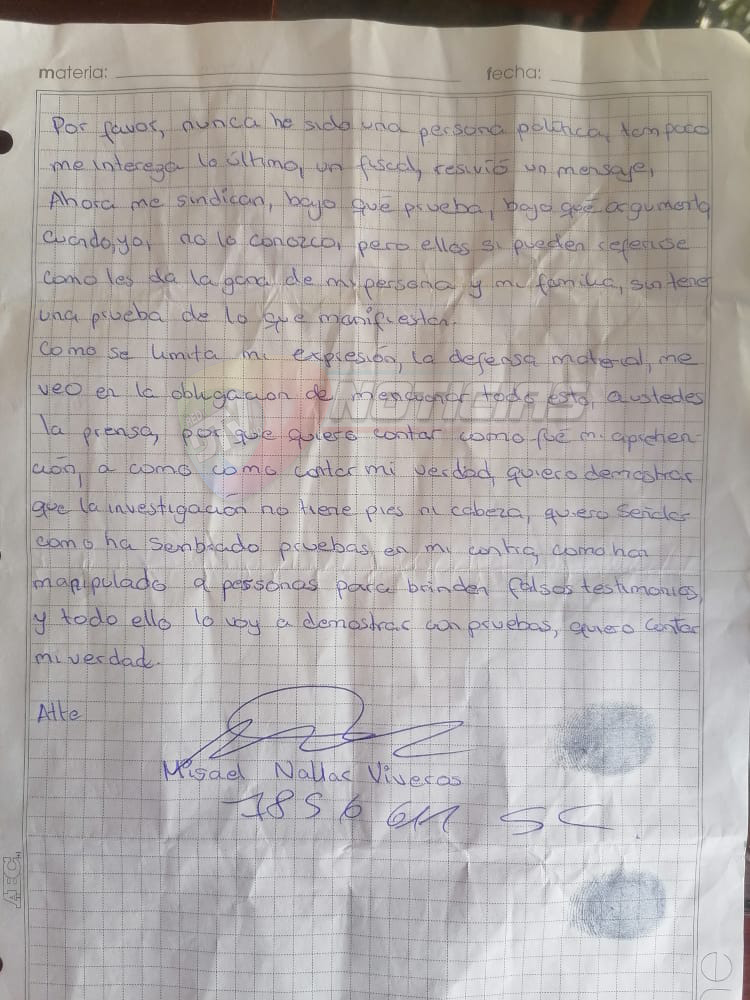 materia: fecha:
Por favor, nunca he sido una persona politica, tampoco
me interega lo último, un fiscal, resivió un mensaje,
Ahora me sindican, bajo qué prueba, bajo qué argumento
cuando, yo, no lo conozco, pero ellos si pueden referirse
como les da la gana de mi persona y mi familia, sin tener
una prueba de lo que manifiestan.
Como se limita mi expresión, la defensa material, me
veo en la obligacion de mencionar todo esto, a ustedes
la prensa, por que quiero contar como fué mi aprehen-
ción, a como como contar mi verdad, quiero demostrar
que la investigación no tiene pies ni cabeza, quiero señalar
como ha senbrado pruebas, en mi contra, como han
manipulado a personas para brinden falsos testimonios,
y todo ello lo voy a demostrar con pruebas, quiero contar
mi verdad.
Atte
Misael Nallar Viveros
NOTICIAS